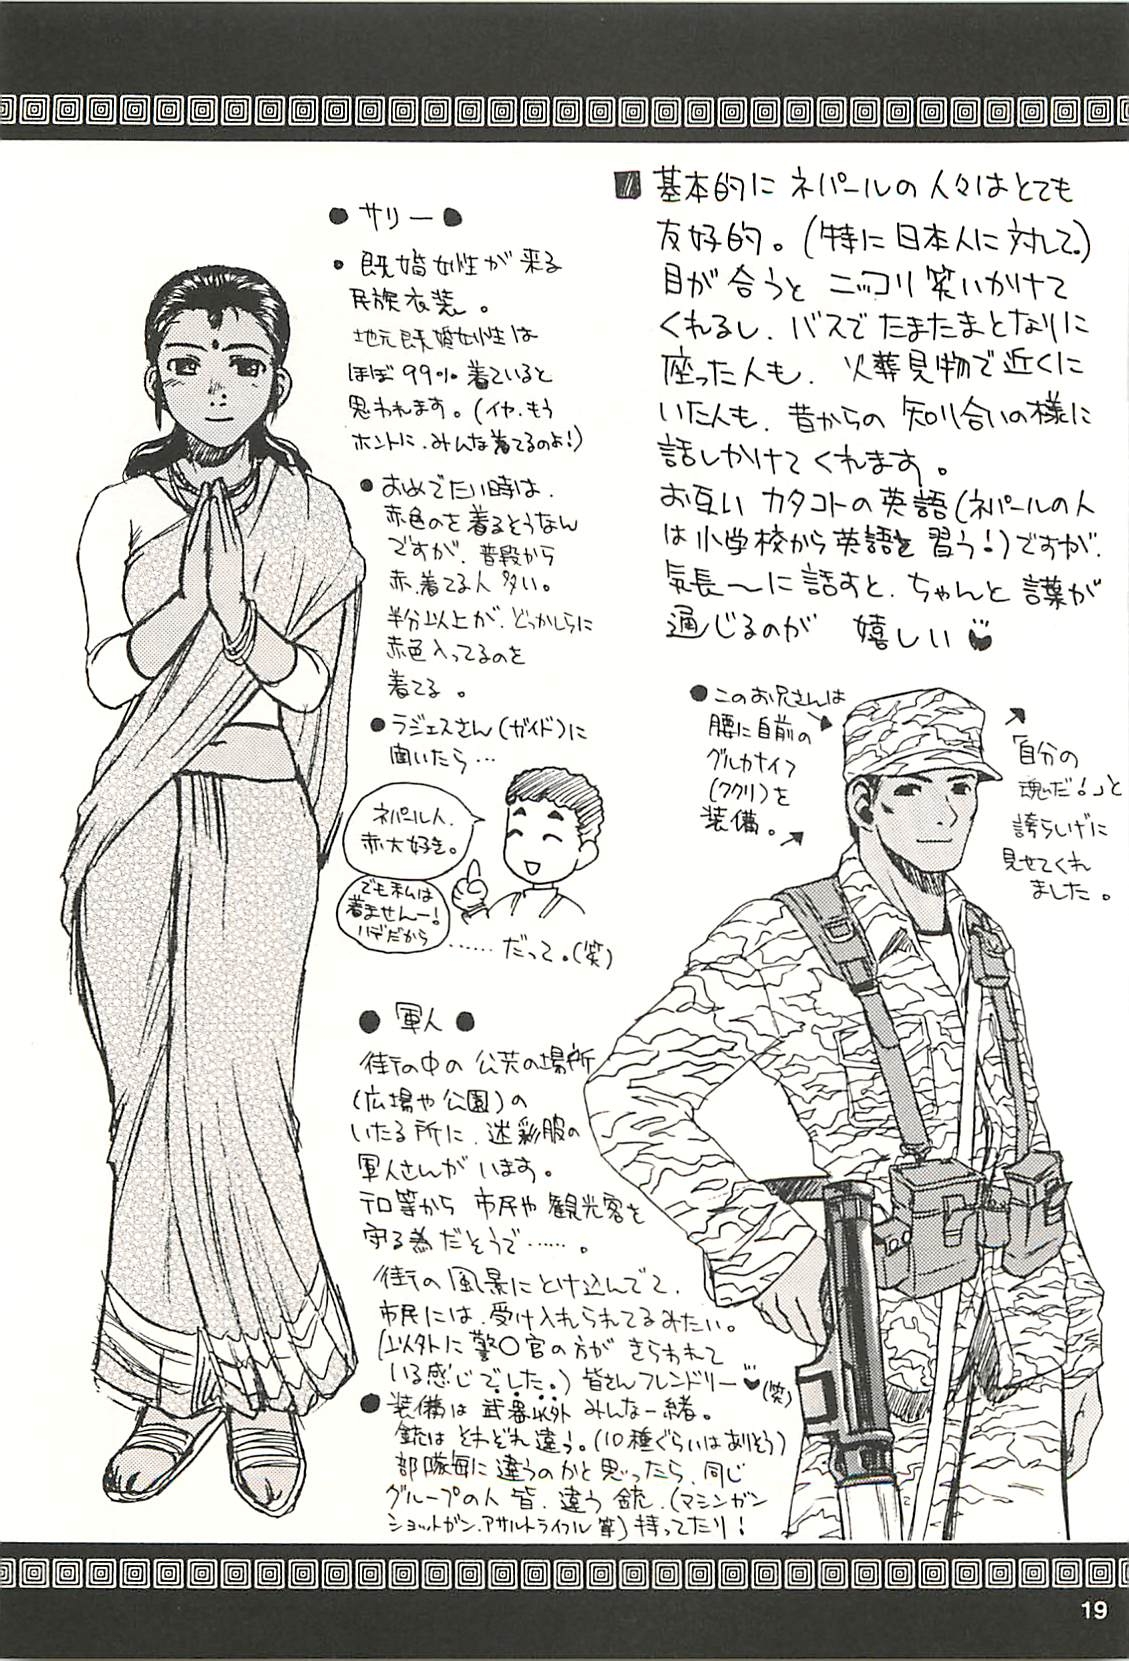 ■ 基本的に ネパールの 人々はとても
友好的。(特に日本人に対して。)
目が合うと ニッコリ 笑いかけて
くれるし、バスで たまたまとなりに
座った人も、火葬見物で近くに
いた人も、昔からの 知り合いの様に
話しかけて くれます。
お互い カタコトの英語(ネパールの人
は小学校から英語を習う!)ですが、
気長〜に話すと、ちゃんと 言葉が
通じるのが 嬉しい
● サリー ●
• 既婚女性が 来る
民族衣装。
地元既婚女性は
ほぼ99%着ていると
思われます。(イヤ、もう
ホントに、みんな着てるのよ!)
● おめでたい時は、
赤色のを着るそうなん
ですが、普段から
赤、着てる人 多い。
半分以上が、どっかしらに
赤色入ってるのを
着てる。
● ラジェスさん(ガイド)に
聞いたら…
ネパール人、
赤大好き。
でも私は
着ませんー!
ハデだから
……だって。(笑)
● このお兄さんは
腰に自前の
グルカナイフ
(ククリ)を
装備。
「自分の
魂だ!」と
誇らしげに
見せてくれ
ました。
● 軍人 ●
街の中の 公共の場所
(広場や公園)の
いたる所に、迷彩服の
軍人さんが います。
テロ等から 市民や観光客を
守る為だそうで……。
街の風景にとけ込んでて、
市民には、受け入れられてるみたい。
(以外に警〇官の方が きらわれて
いる感じでした。)皆さんフレンドリー(笑)
● 装備は 武器以外 みんな一緒。
銃は それぞれ違う。(10種ぐらいはありそう)
部隊毎に違うのかと思ったら、同じ
グループの人 皆、違う 銃、(マシンガン
ショットガン、アサルトライフル 等)持ってたり!
19